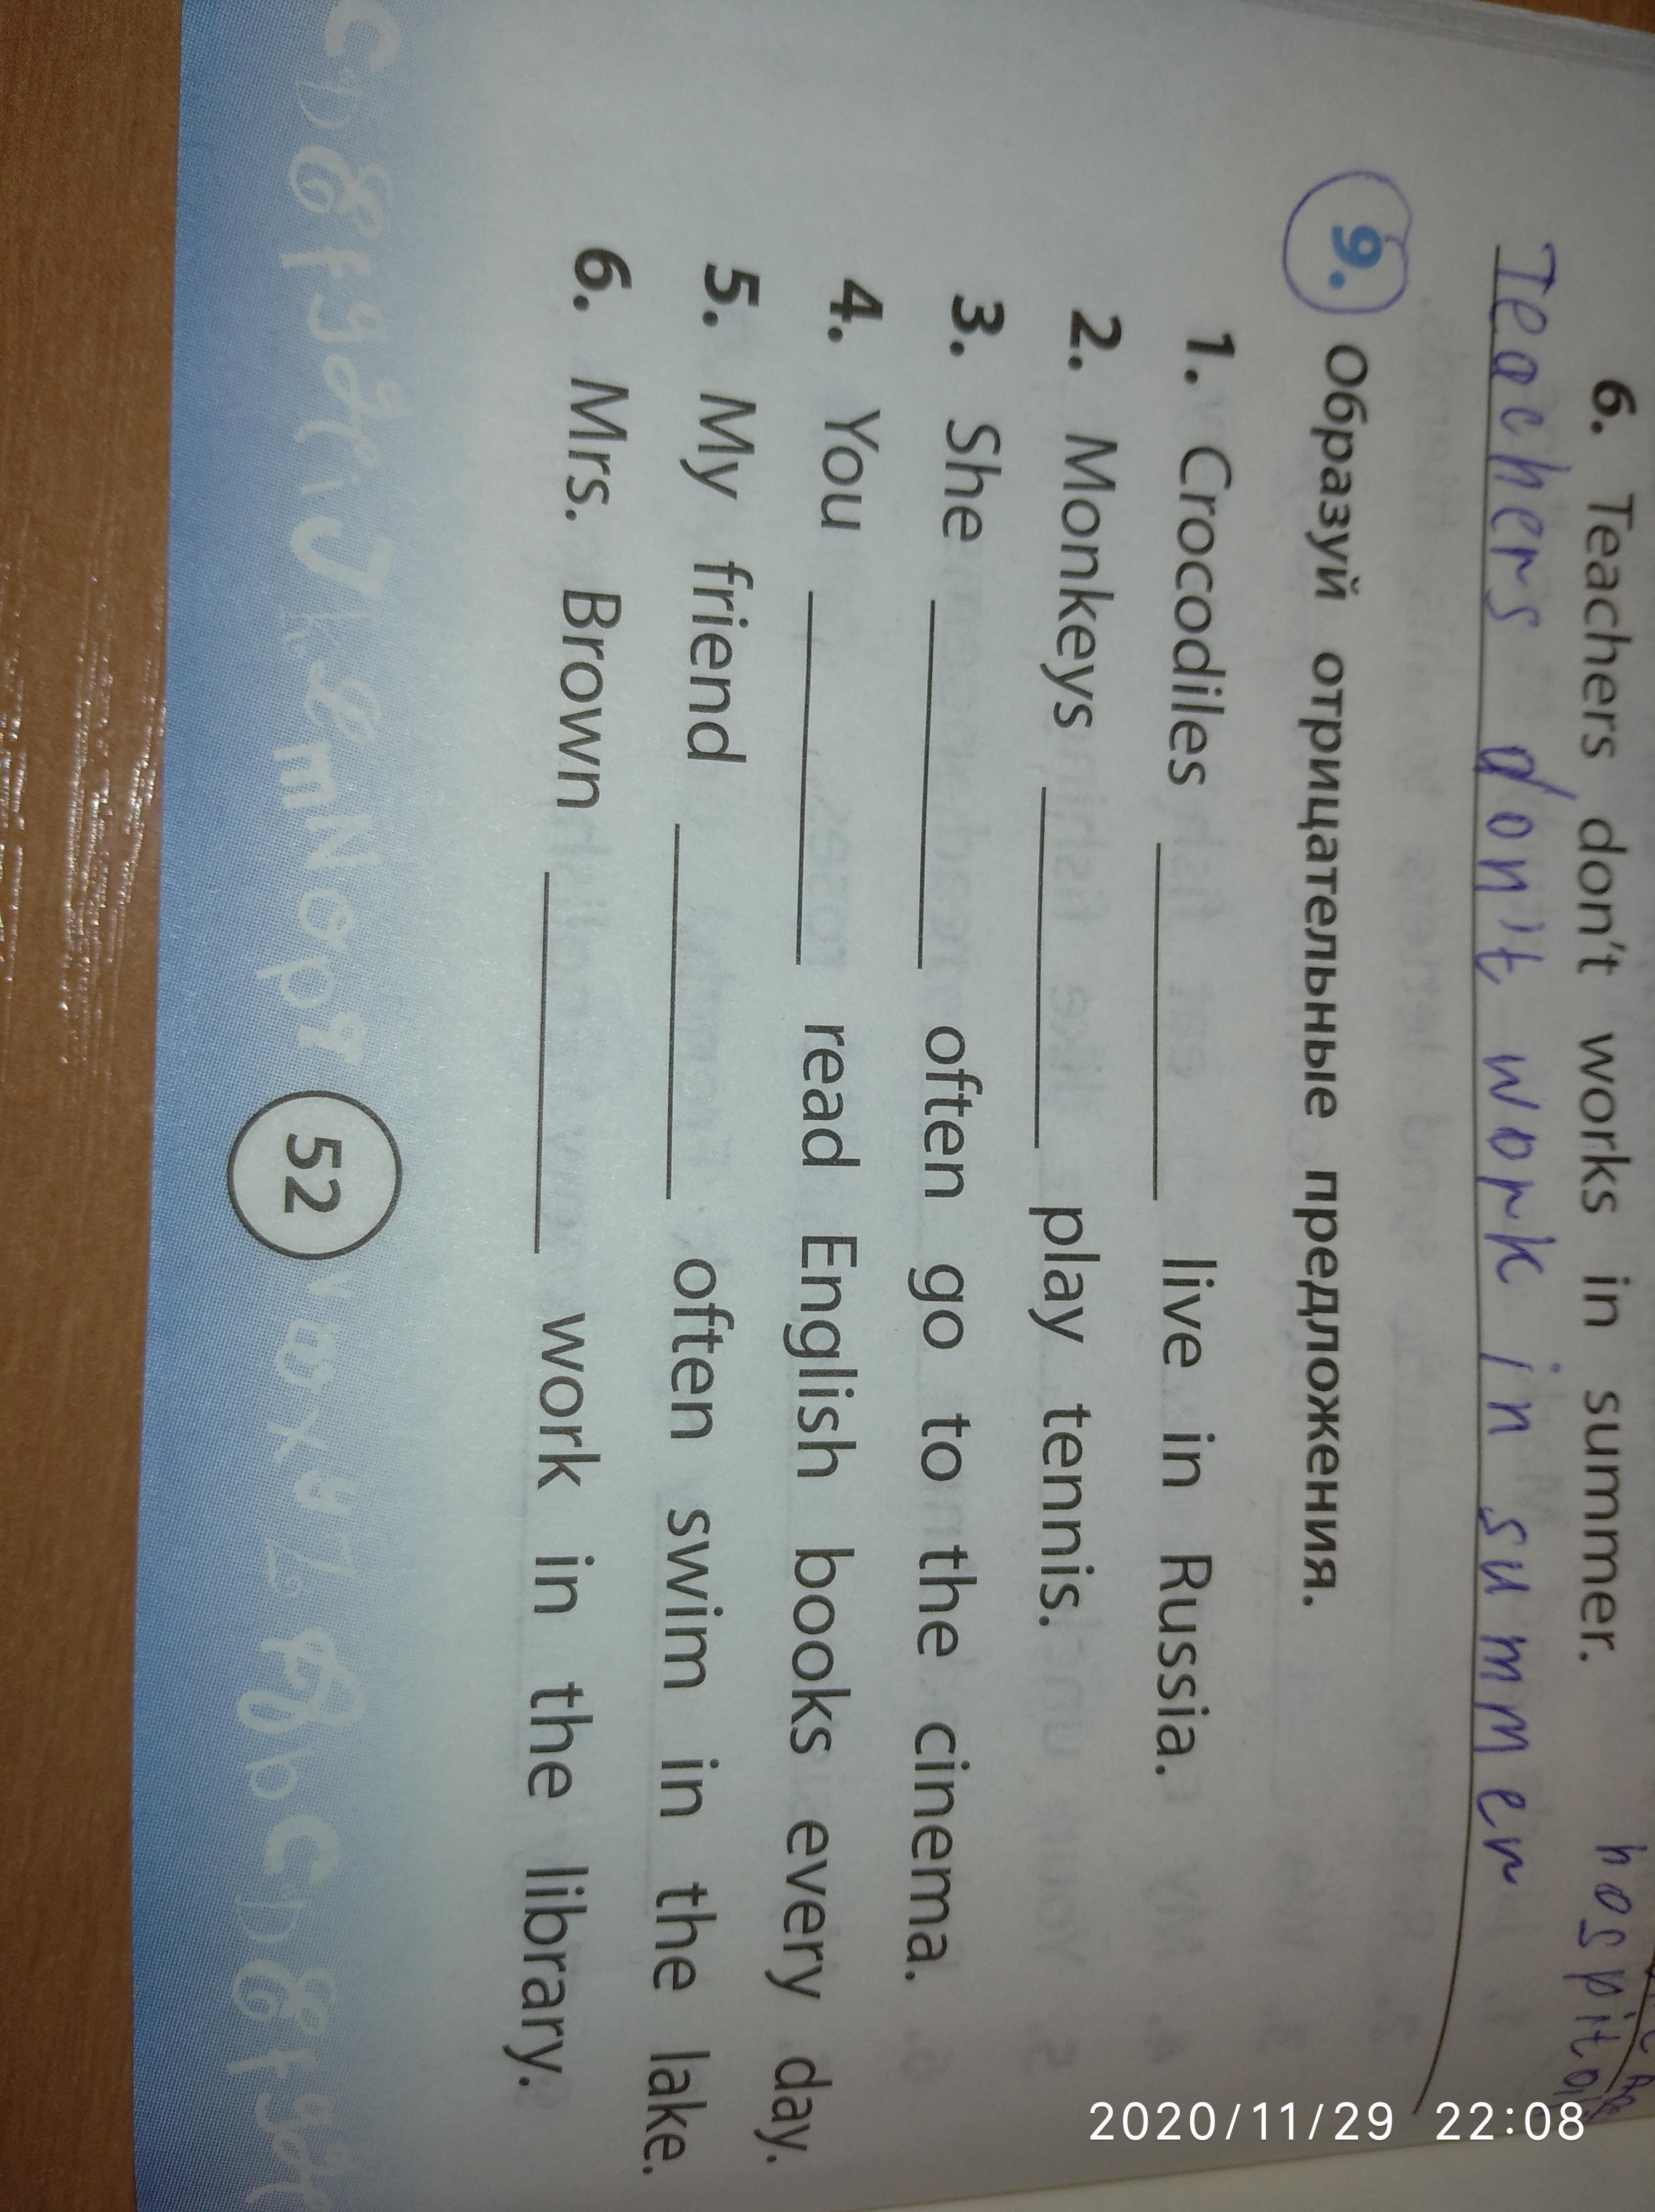 6. Teachers don't works in summer.
hospital
Teachers don't work in summer
9. Образуй отрицательные предложения.
1. Crocodiles ____ live in Russia.
2. Monkeys ____ play tennis.
3. She ____ often go to the cinema.
4. You ____ read English books every day.
5. My friend ____ often swim in the lake.
6. Mrs. Brown ____ work in the library.
52
2020/11/29 22:08